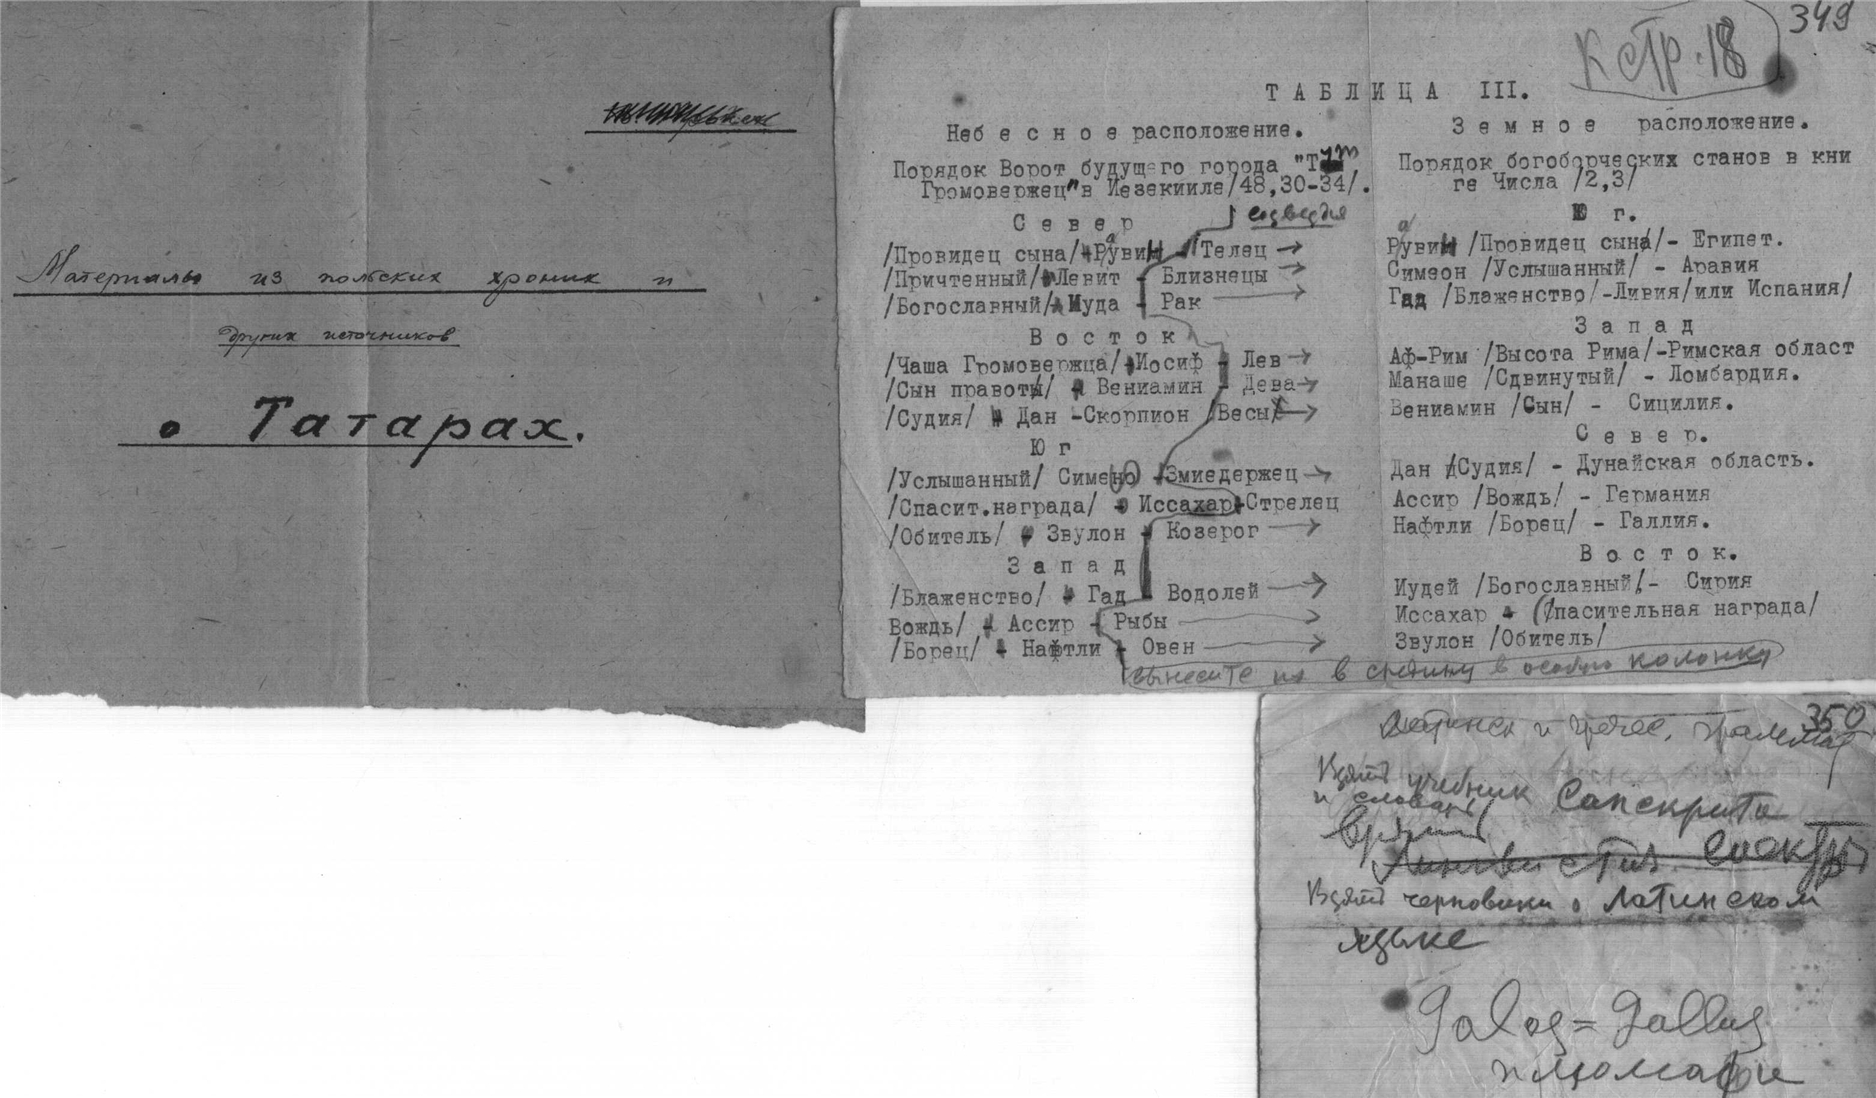 Материалы из польских хроник и
других источников
о Татарах.
349
К стр. 18
ТАБЛИЦА III.
Небесное расположение.
Порядок Ворот будущего города "Тут
Громовержец" в Иезекииле/48,30-34/.
созвездия
Север
/Провидец сына/ Рувин - Телец
/Причтенный/ Левит - Близнецы
/Богославный/ Иуда - Рак
Восток
/Чаша Громовержца/ Иосиф - Лев
/Сын правоты/ Вениамин - Дева
/Судия/ Дан -Скорпион /Весы/
Юг
/Услышанный/ Симеон -Змиедержец
/Спасит.награда/ - Иссахар-Стрелец
/Обитель/ Звулон - Козерог
Запад
/Блаженство/ - Гад - Водолей
Вождь/ - Ассир - Рыбы
/Борец/ - Нафтли - Овен
вынесите их в средину в особую колонку
Земное расположение.
Порядок богоборческих станов в кни
ге Числа /2,3/
Юг.
Рувин /Провидец сына/- Египет.
Симеон /Услышанный/ - Аравия
Гад /Блаженство/-Ливия/или Испания/
Запад
Аф-Рим /Высота Рима/-Римская област
Манаше /Сдвинутый/ - Ломбардия.
Вениамин /Сын/ - Сицилия.
Север.
Дан /Судия/ - Дунайская область.
Ассир /Вождь/ - Германия
Нафтли /Борец/ - Галлия.
Восток.
Иудей /Богославный/- Сирия
Иссахар - (Спасительная награда/
Звулон /Обитель/
350
Латинск и греческ. граммат
Взять учебник Санскрита
и словарь
Взять
Взять черновики о Латинском
языке
Galos = Gallus